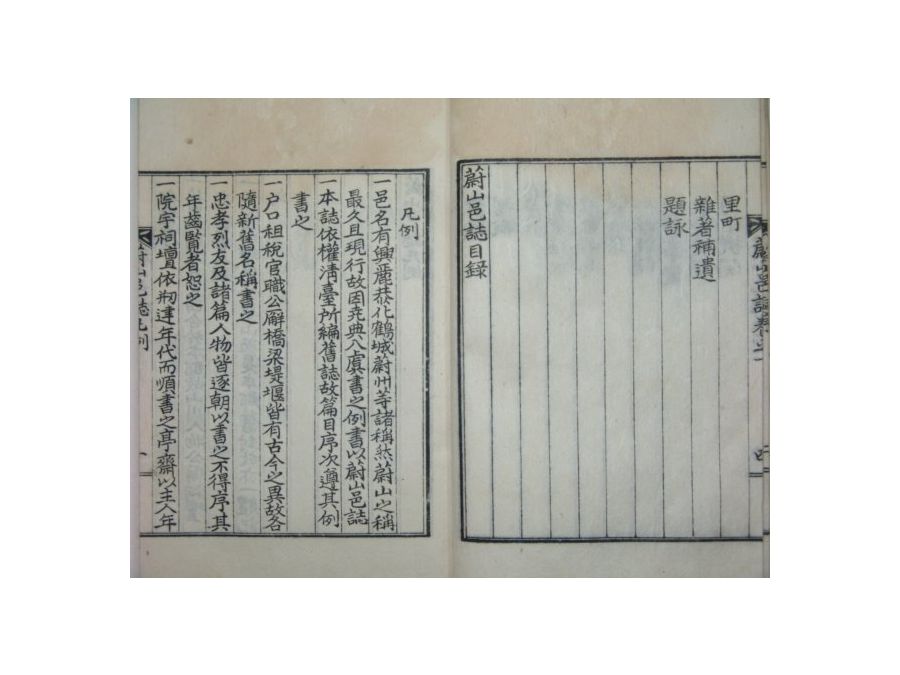 里町
雜著補遺
題詠
蔚山邑誌目録
凡例
一邑名有興麗恭化鶴城蔚州等諸稱然蔚山之稱
最久且現行故因堯典入虞書之例書以蔚山邑誌
一本誌依權清臺所編舊誌故篇目序次遵其例
書之
一户口租稅官職公廨橋梁堤堰皆有古今之異故各
隨新舊名稱書之
一忠孝烈友及諸篇人物皆逐朝以書之不得序其
年齒覽者恕之
一院宇祠壇依刱建年代而順書之亭齋以主人年
蔚山邑誌凡例